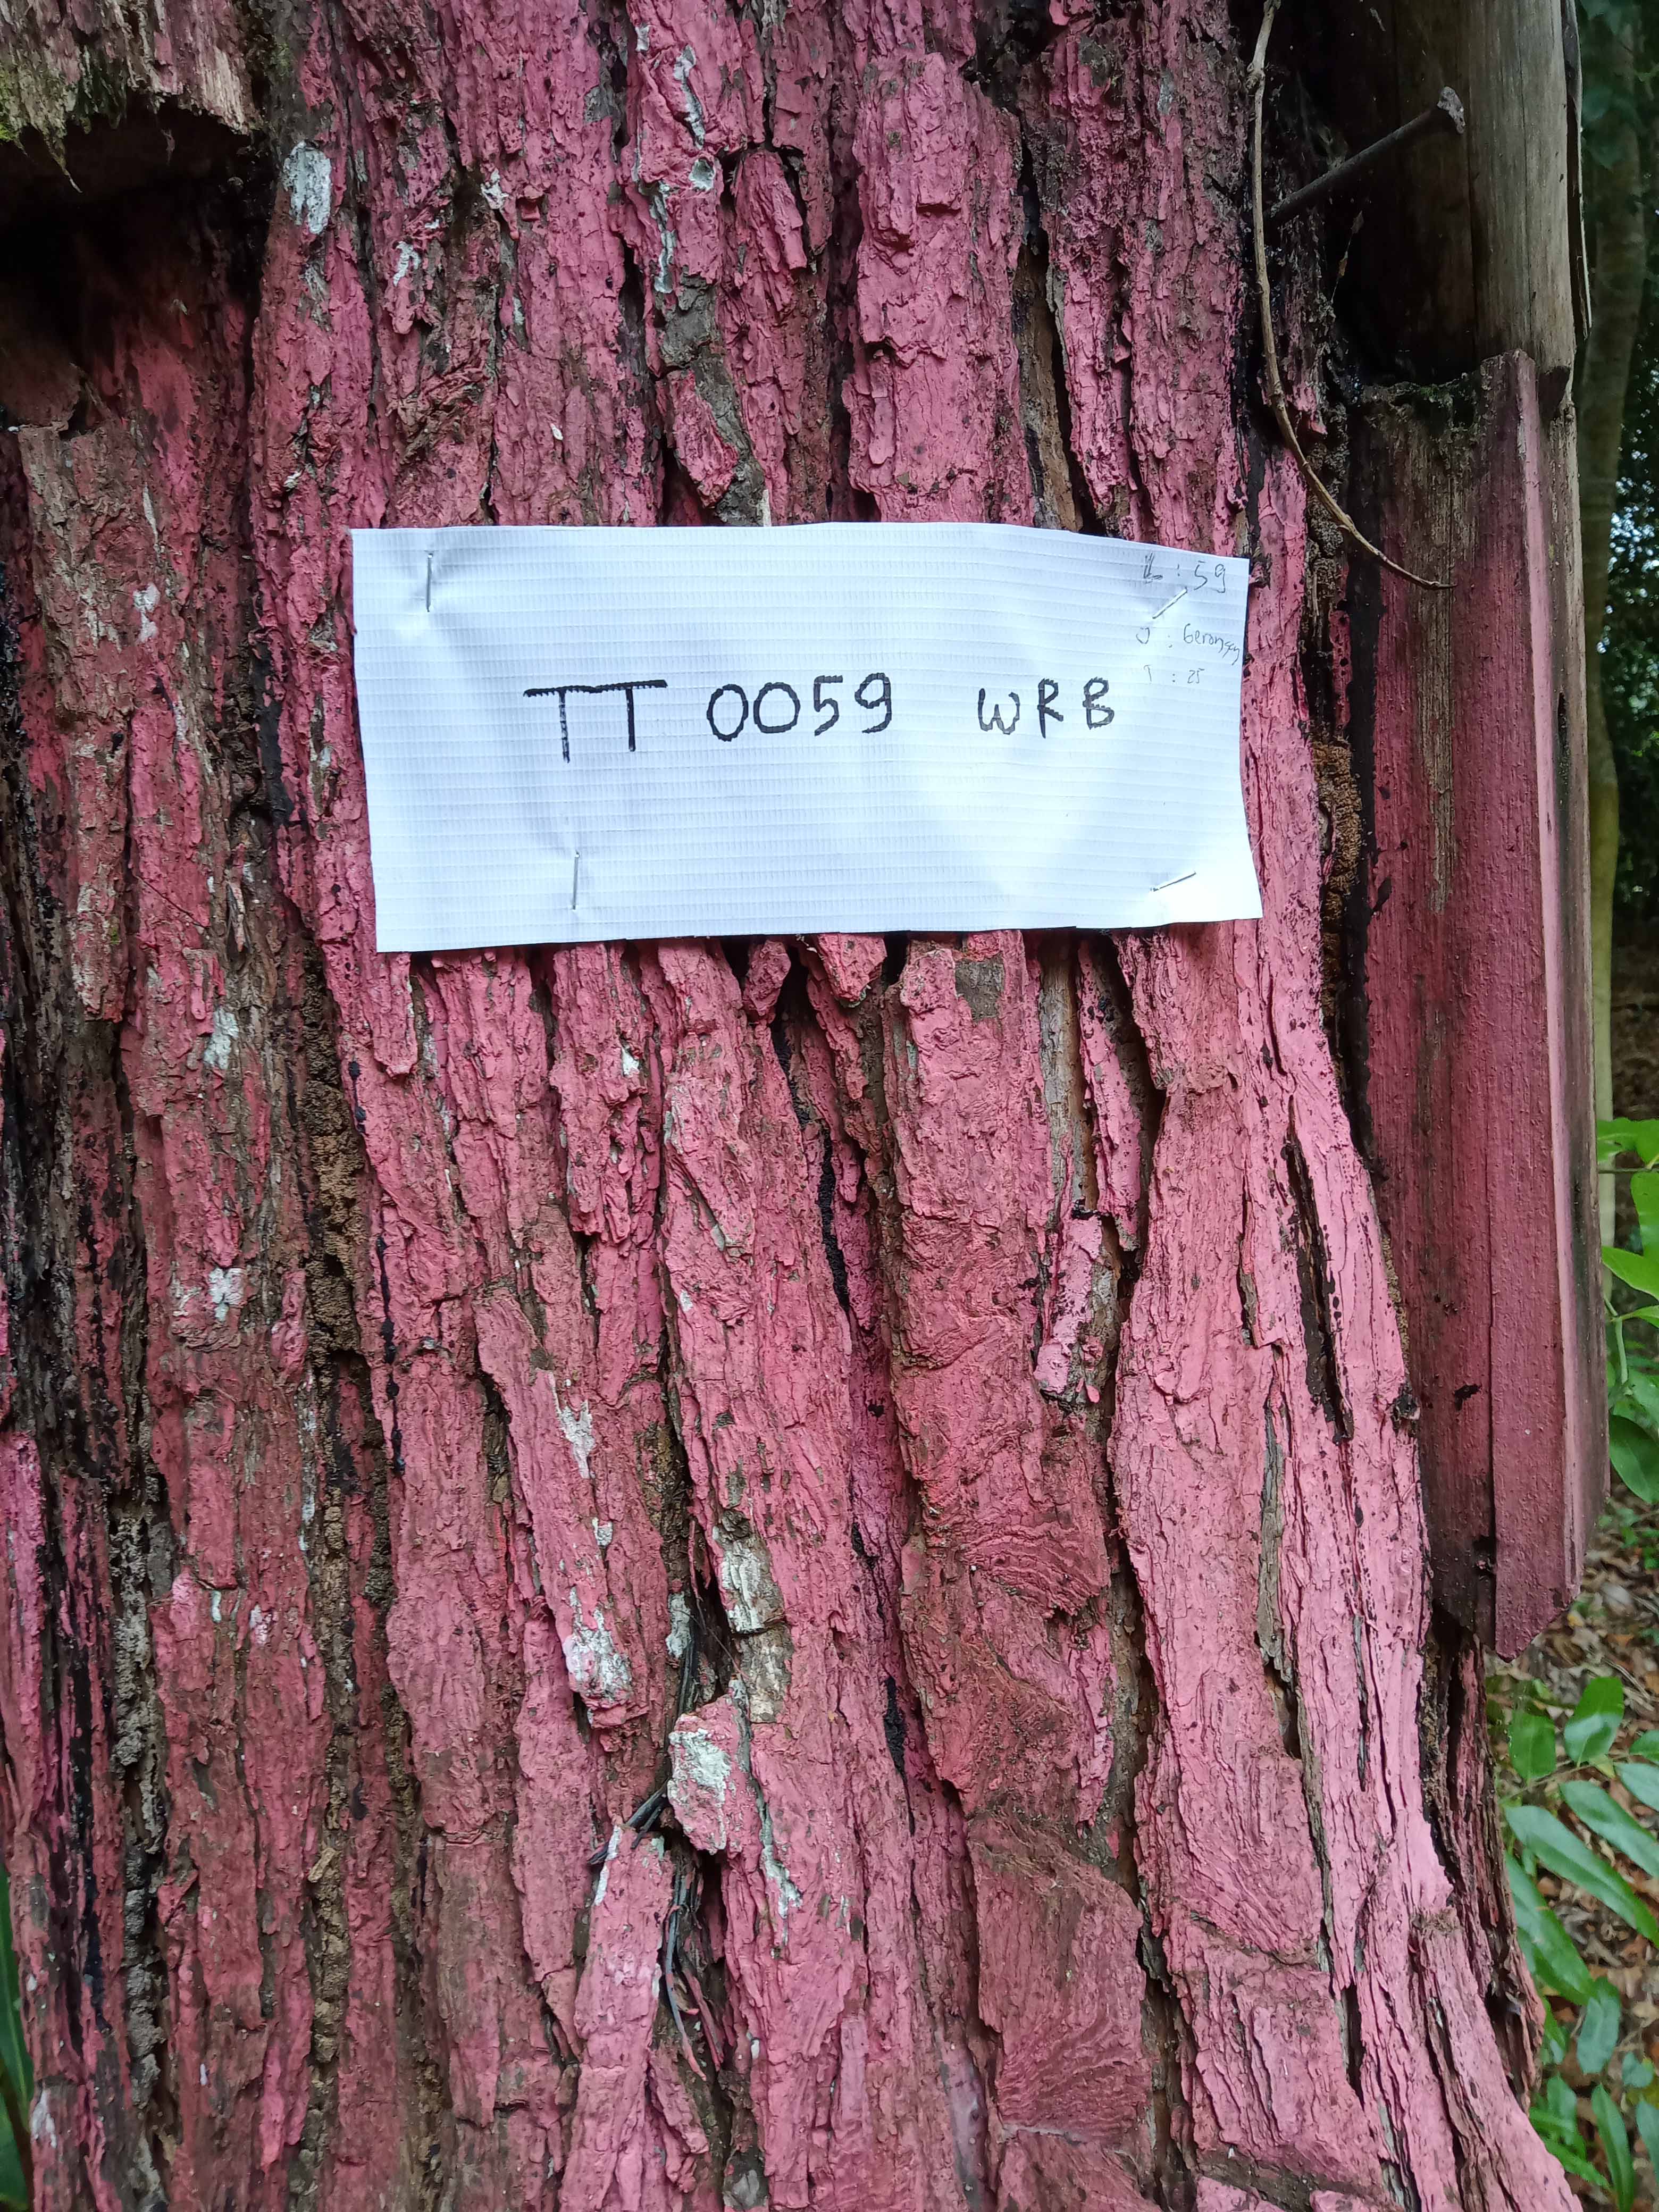 : 59
J : Gerongga
T : 25
TT 0059 WRB